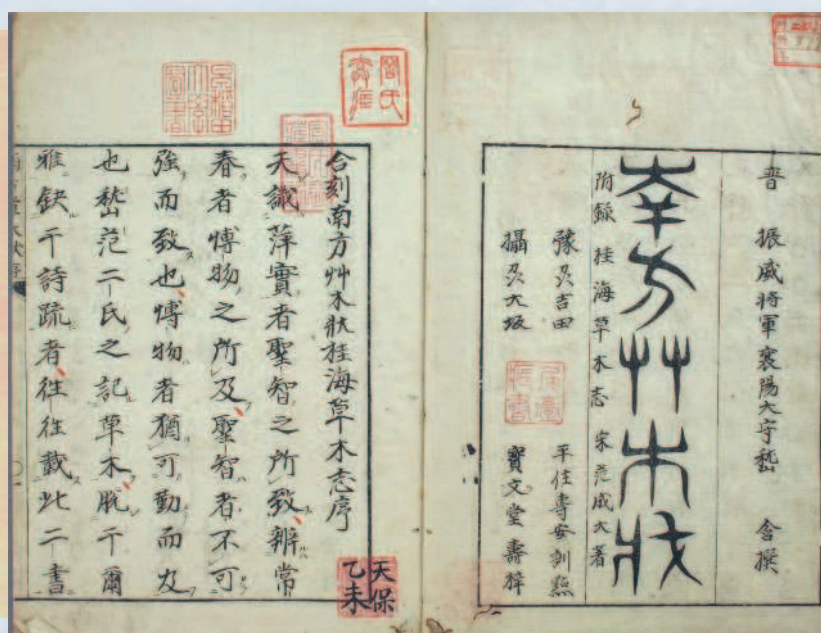 晋 振威将軍襄陽大守嵆 含撰
南方艸木状
附録 桂海草木志 宋范成大著
豫忍吉田 平住専安訓點
攝忍大坂 寳文堂壽梓
合刻南方艸木狀桂海草木志序
天識萍實者聖智之所致辨常
春者博物之所及聖智者不可
強而致也博物者猶可勤而及
也嵆范二氏之記草木肬干爾
雅缺干詩疏者往往載此二書
天保
乙未